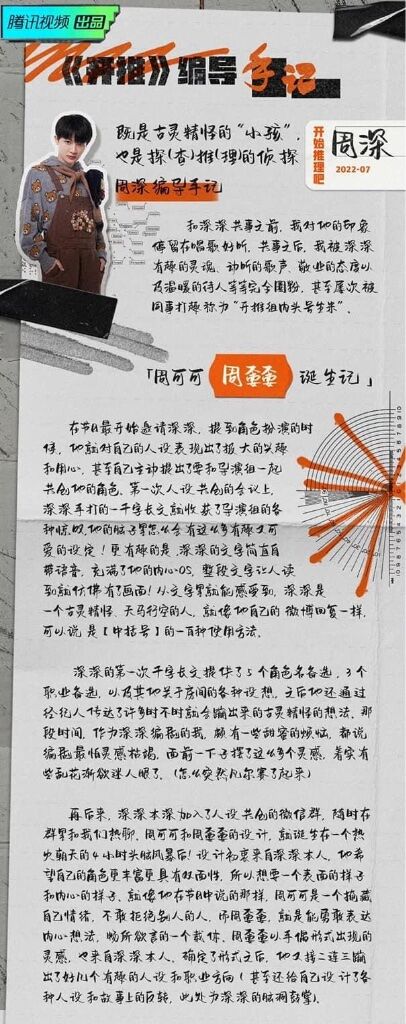 腾讯视频 出品
《开推》编导手记
既是古灵精怪的“小孩”，
也是探(杏)推(理)的侦探
周深编导手记
开始推理吧
周深
2022-07
和深深共事之前，我对他的印象
停留在唱歌好听，共事之后，我被深深
有趣的灵魂、动听的歌声、敬业的态度以
及温暖的待人等等完全圈粉，甚至屡次被
同事打趣称为“开推组内头号生米”。
「周可可 周歪歪 诞生记」
在节目最开始邀请深深，提到角色扮演的时
候，他就对自己的人设表现出了极大的兴趣
和用心，甚至自己主动提出了要和导演组一起
共创他的角色。第一次人设共创的会议上，
深深手打的一千字长文就收获了导演组的各
种惊叹，他的脑子里怎么会有这么多有趣又可
爱的设定！更有趣的是，深深的文字简直自
带语音，充满了他的内心OS，整段文字让人读
到就仿佛有了画面！从文字里就能感受到，深深是
一个古灵精怪、天马行空的人，就像他自己的微博回复一样，
可以说是【中括号】的一百种使用方法。
深深的第一次千字长文提供了5个角色名备选，3个
职业备选，以及其他关于房间的各种设想。之后他还通过
经纪人传达了许多时不时就会蹦出来的古灵精怪的想法。那
段时间，作为深深编剧的我，颇有一些甜蜜的烦恼，都说
编剧最怕灵感枯竭，面前一下子摆了这么多个灵感，着实有
些乱花渐欲迷人眼了。(怎么突然凡尔赛了起来)
再后来，深深本深加入了人设共创的微信群，随时在
群里和我们热聊，周可可和周歪歪的设计，就诞生在一个热
火朝天的4小时头脑风暴后！设计初衷来自深深本人，他希
望自己的角色更丰富更具有双面性，所以想要一个表面的样子
和内心的样子，就像他在节目中说的那样，周可可是一个掩藏
自己情绪，不敢拒绝别人的人，而周歪歪，就是能勇敢表达
内心想法，畅所欲言的一个载体。周歪歪以手偶形式出现的
灵感，也来自深深本人，确定了形式之后，他又接二连三输
出了好几个有趣的人设和职业方向(甚至还给自己设计了各
种人设和故事上的反转，此处为深深的脑洞鼓掌)。